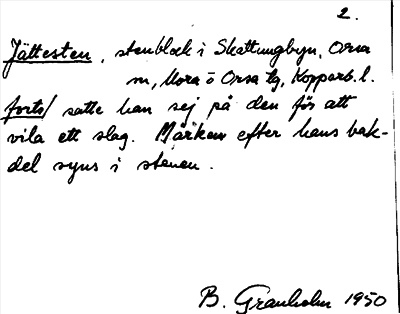 2.
Jättesten, stenblock i Skattungbyn, Orsa
m, Mora o Orsa tg, Kopparb. l.
forts/ satte han sej på den för att
vila ett slag. Märken efter hans bak-
del syns i stenen.
B. Granholm 1950